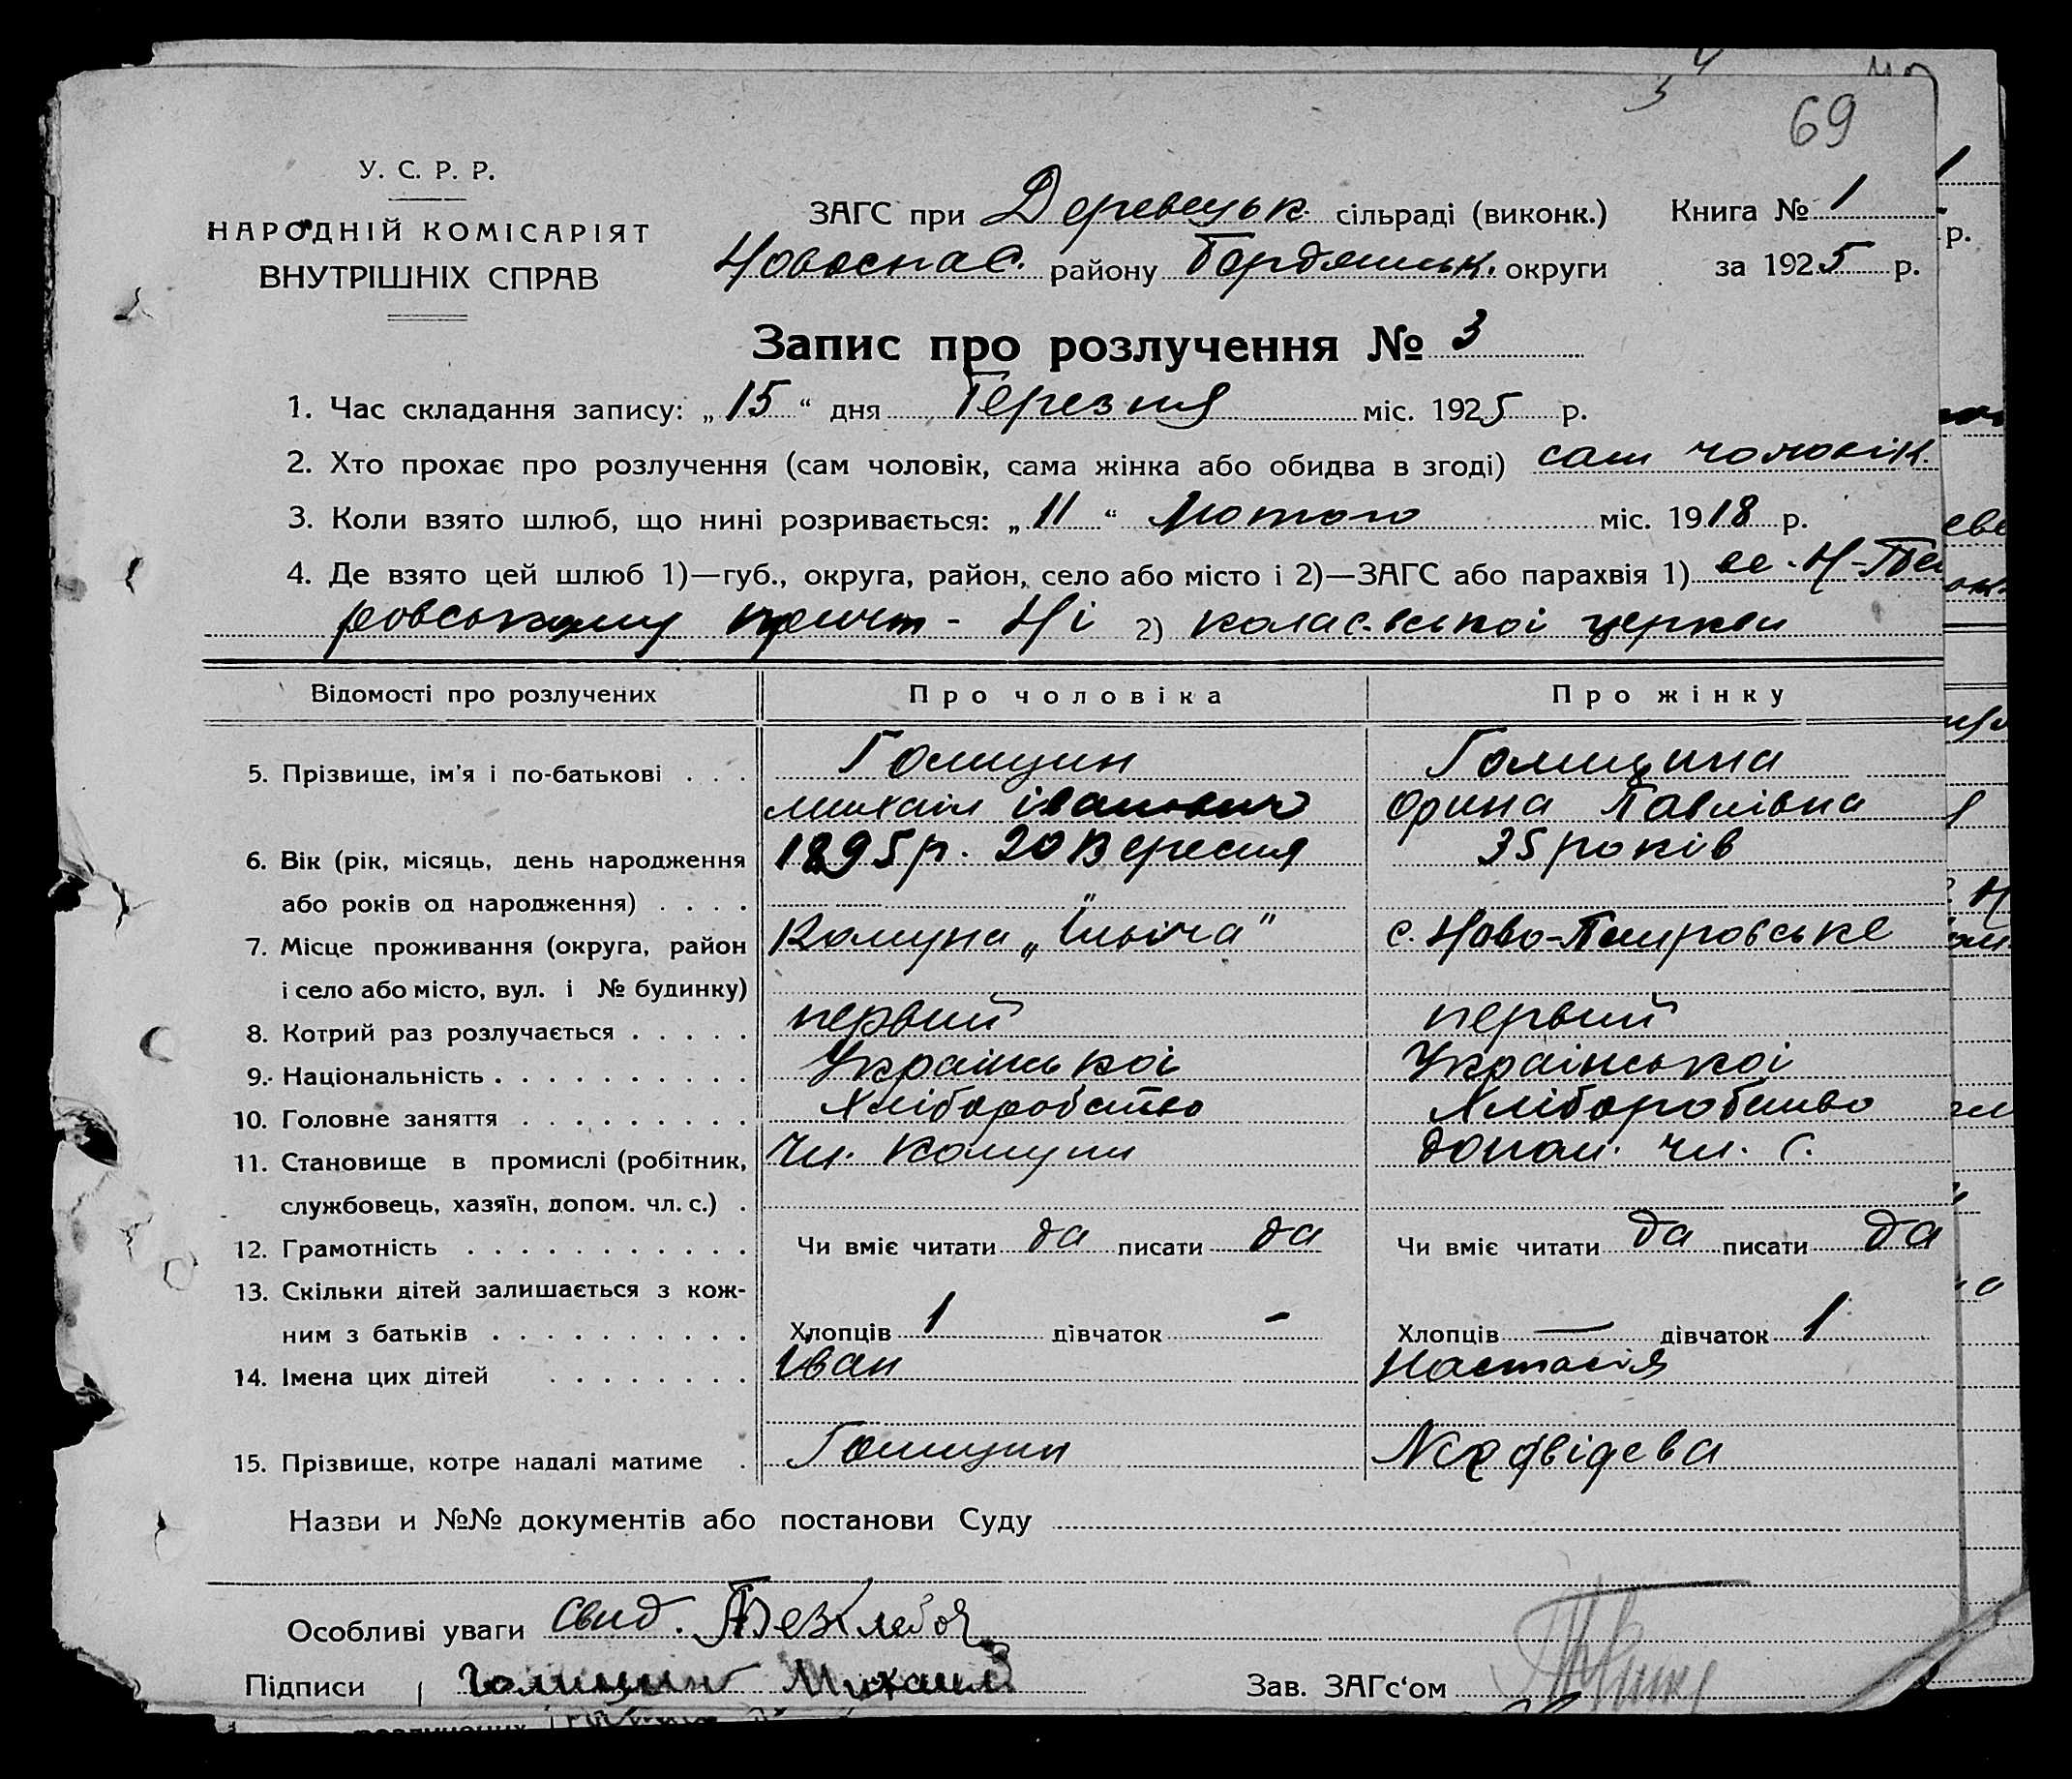 69
У. С. Р. Р.
НАРОДНІЙ КОМІСАРІЯТ
ВНУТРІШНІХ СПРАВ
ЗАГС при Деревецьк. сільраді (виконк.) Книга № 1
Новоспас. району Бердянськ. округи за 1925 р.
Запис про розлучення № 3
1. Час складання запису: „15“ дня Березня міс. 1925 р.
2. Хто прохає про розлучення (сам чоловік, сама жінка або обидва в згоді) сам чоловік.
3. Коли взято шлюб, що нині розривається: „11“ Лютого міс. 1918 р.
4. Де взято цей шлюб 1)—губ., округа, район, село або місто і 2)—ЗАГС або парахвія 1)
Ні 2) колаєвської церкви
Відомості про розлучених Про чоловіка Про жінку
5. Прізвище, ім'я і по-батькові . . . Голицин Голицина
михаіл іванович Орина Павлівна
6. Вік (рік, місяць, день народження 1895 р. 20 Вересня 35 років
або років од народження) . . . .
7. Місце проживання (округа, район Комуна „Ілліча" с. Ново-Петровське
і село або місто, вул. і № будинку)
8. Котрий раз розлучається . . . . . первий первий
9. Національність . . . . . . . . . . Української Української
10. Головне заняття . . . . . . . . . Хліборобство Хліборобство
11. Становище в промислі (робітник, Чл. Комуни допом. чл. с.
службовець, хазяїн, допом. чл. с.) .
12. Грамотність . . . . . . . . . . . Чи вміє читати да писати да Чи вміє читати да писати да
13. Скільки дітей залишається з кож-
ним з батьків . . . . . . . . . . Хлопців 1 дівчаток - Хлопців — дівчаток 1
14. Імена цих дітей . . . . . . . . Іван Настасія
15. Прізвище, котре надалі матиме . Голицин Медвідева
Назви и №№ документів або постанови Суду
Особливі уваги Свид.
Підписи Голицин Михаил Зав. ЗАГс‘ом